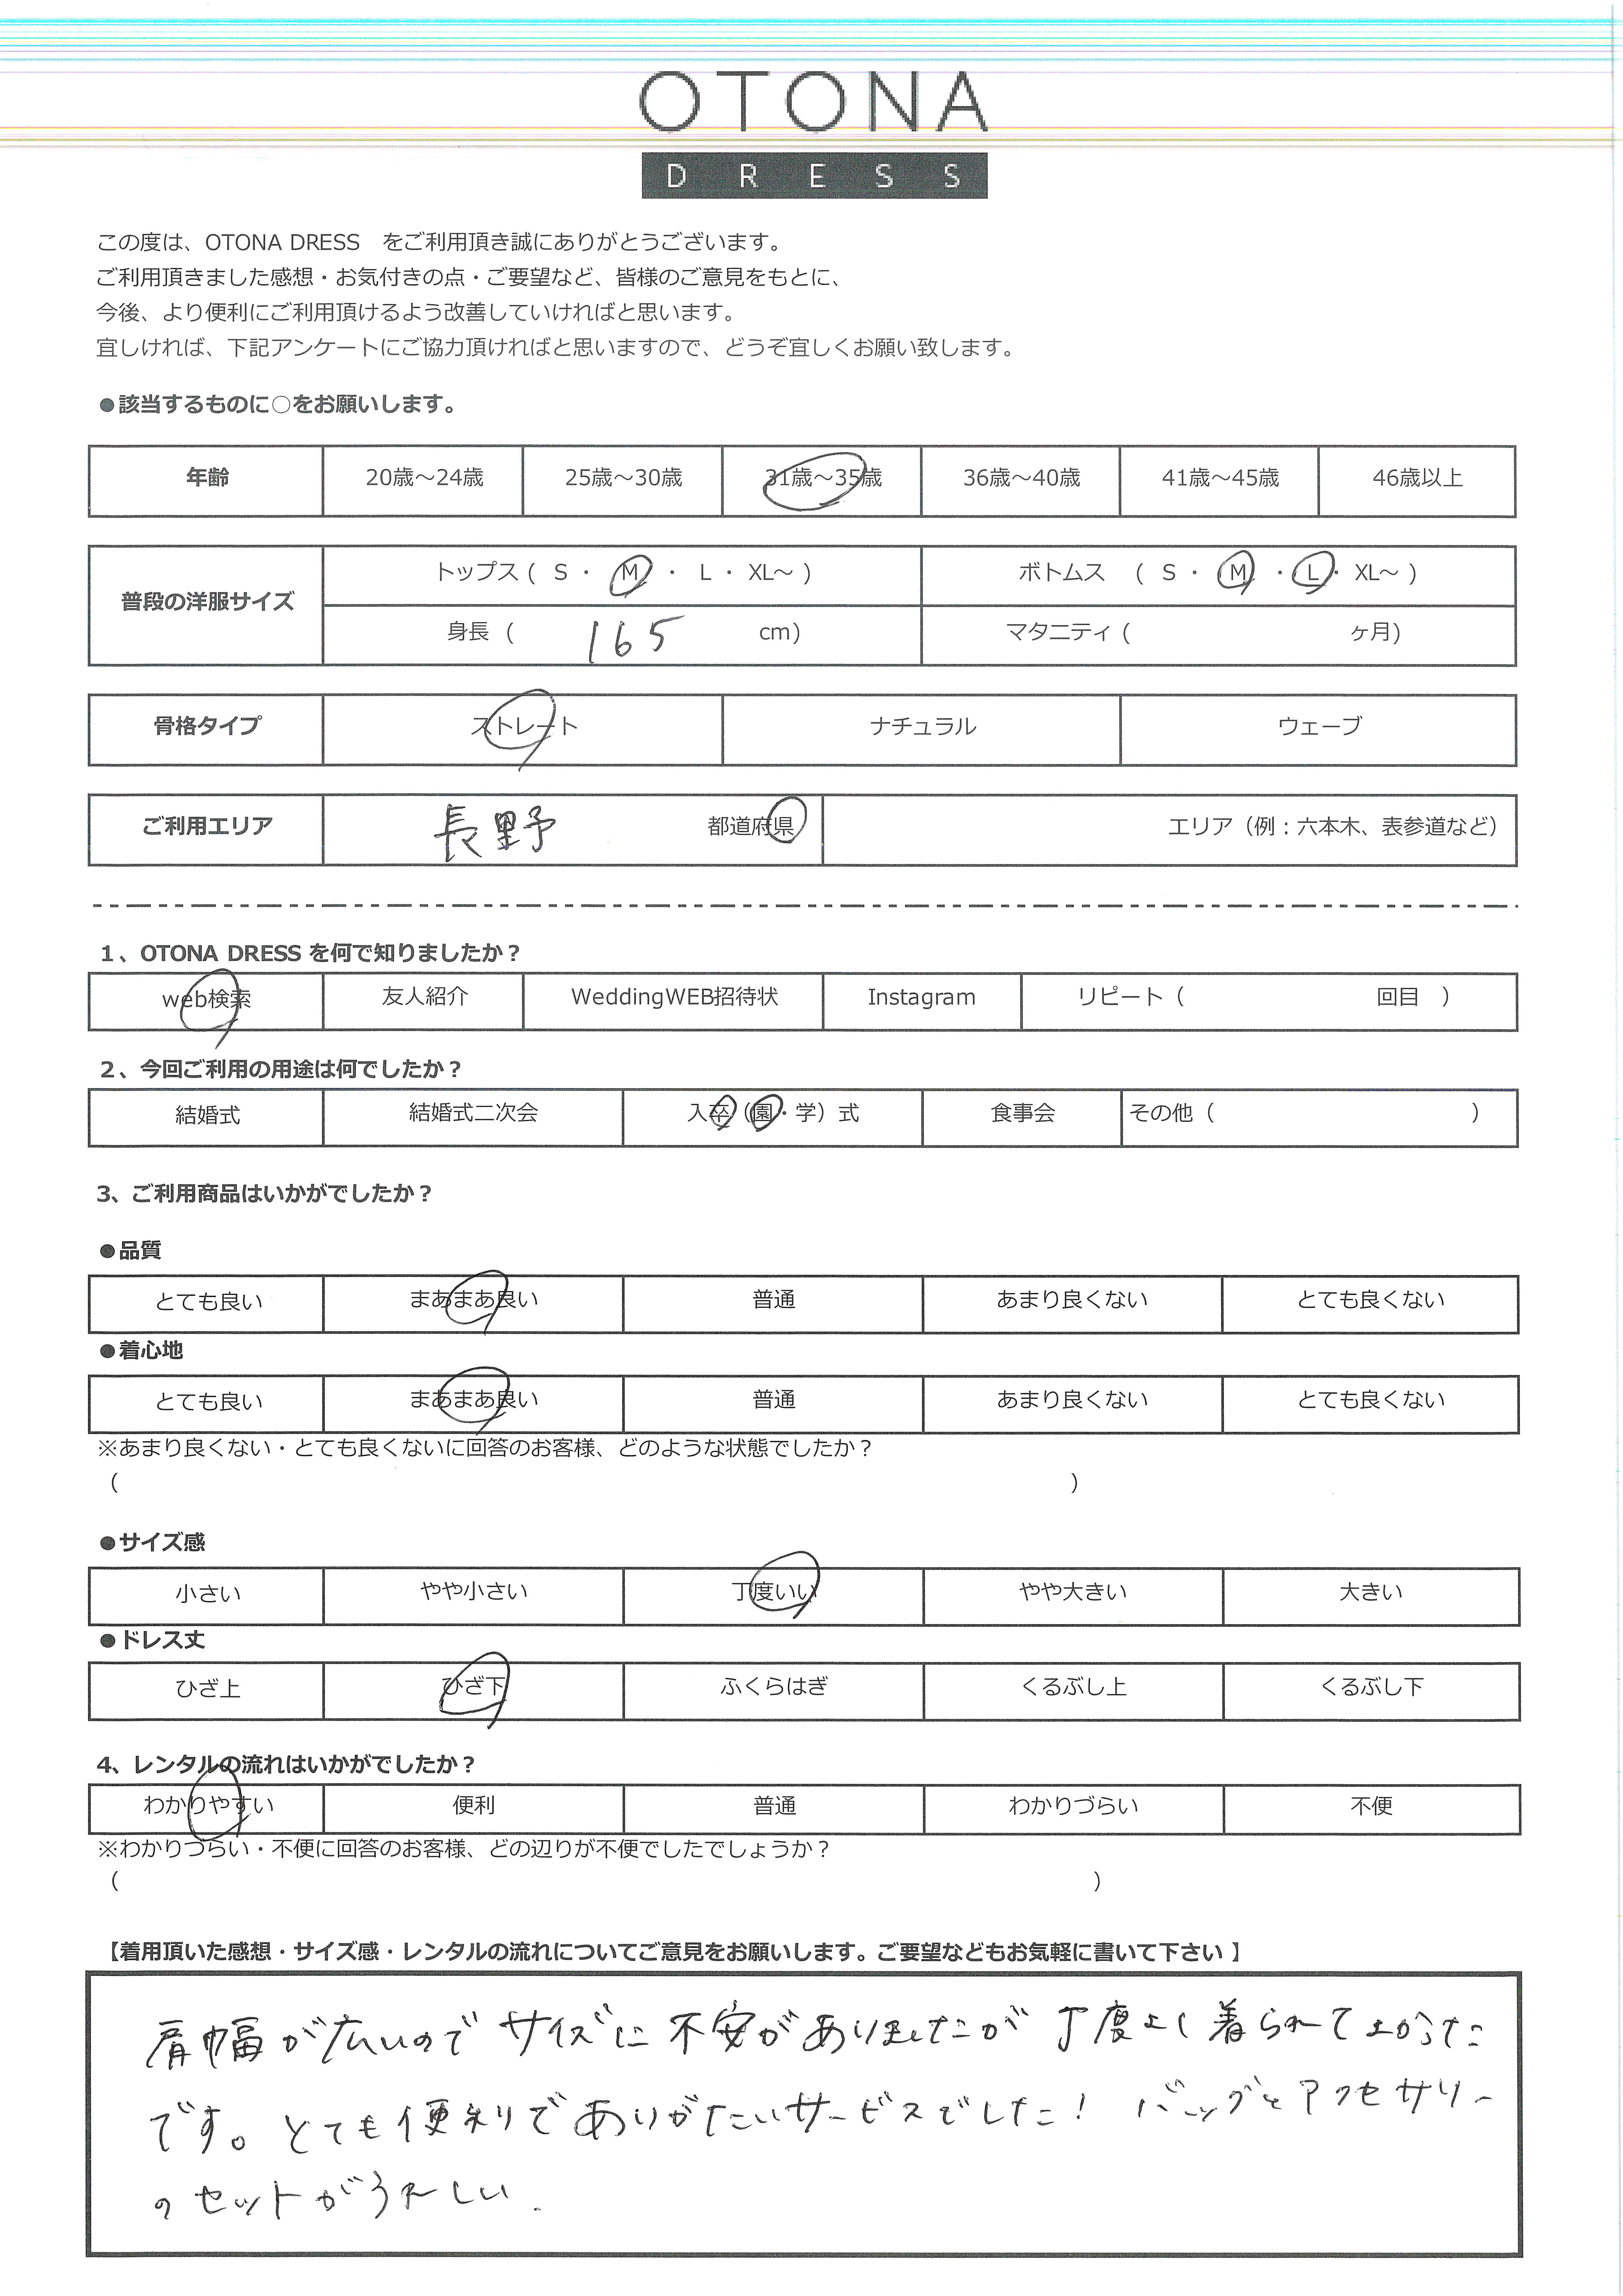 OTONA
DRESS
この度は、OTONA DRESS　をご利用頂き誠にありがとうございます。
ご利用頂きました感想・お気付きの点・ご要望など、皆様のご意見をもとに、
今後、より便利にご利用頂けるよう改善していければと思います。
宜しければ、下記アンケートにご協力頂ければと思いますので、どうぞ宜しくお願い致します。
●該当するものに○をお願いします。
年齢 20歳～24歳 25歳～30歳 31歳～35歳 36歳～40歳 41歳～45歳 46歳以上
普段の洋服サイズ トップス ( S ・ M ・ L ・ XL～ ) ボトムス ( S ・ M ・ L ・ XL～ )
身長 ( 165 cm) マタニティ ( ヶ月)
骨格タイプ ストレート ナチュラル ウェーブ
ご利用エリア 長野 都道府県 エリア（例：六本木、表参道など）
1、OTONA DRESS を何で知りましたか？
web検索 友人紹介 WeddingWEB招待状 Instagram リピート（ 回目 ）
2、今回ご利用の用途は何でしたか？
結婚式 結婚式二次会 入卒（園・学）式 食事会 その他（ ）
3、ご利用商品はいかがでしたか？
●品質
とても良い まあまあ良い 普通 あまり良くない とても良くない
●着心地
とても良い まあまあ良い 普通 あまり良くない とても良くない
※あまり良くない・とても良くないに回答のお客様、どのような状態でしたか？
（ ）
●サイズ感
小さい やや小さい 丁度いい やや大きい 大きい
●ドレス丈
ひざ上 ひざ下 ふくらはぎ くるぶし上 くるぶし下
4、レンタルの流れはいかがでしたか？
わかりやすい 便利 普通 わかりづらい 不便
※わかりづらい・不便に回答のお客様、どの辺りが不便でしたでしょうか？
（ ）
【着用頂いた感想・サイズ感・レンタルの流れについてご意見をお願いします。ご要望などもお気軽に書いて下さい 】
肩幅が広いので サイズに 不安がありましたが 丁度よく 着られて よかった
です。とても便利でありがたいサービスでした！ バッグとアクセサリー
のセットがうれしい.